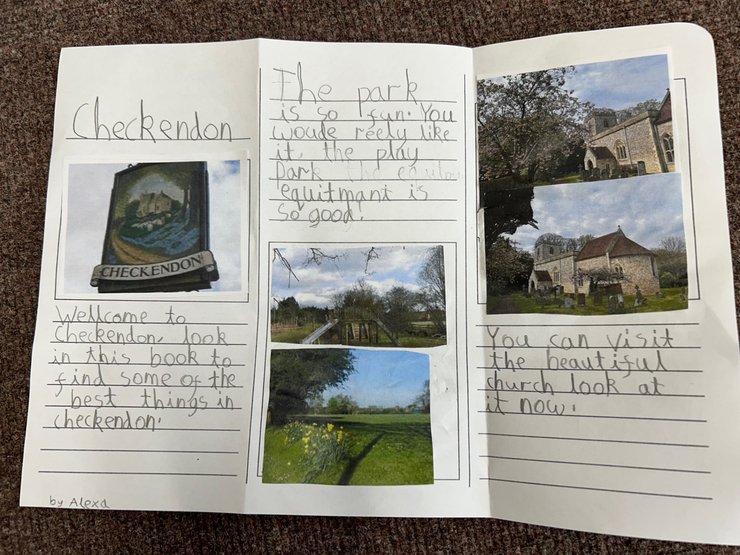 Checkendon
CHECKENDON
Wellcome to
Checkendon, look
in this book to
find some of the
best things in
checkendon.
by Alexa
The park
is so fun. You
woude reely like
it. the play
park the
equitmant is
so good.
You can visit
the beautiful
church look at
it now.